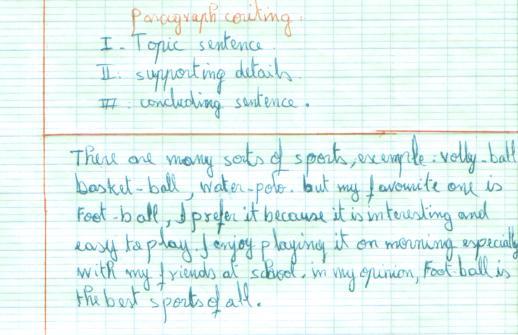 Paragraph writing.
I. Topic sentence
II. supporting details.
III. concluding sentence.
There are many sorts of sports, exemple: volly-ball
basket-ball, water-polo. but my favourite one is
Foot-ball, I prefer it because it is interesting and
easy to play I enjoy playing it on morning especially
with my friends at school. in my opinion, Foot-ball is
the best sports of all.